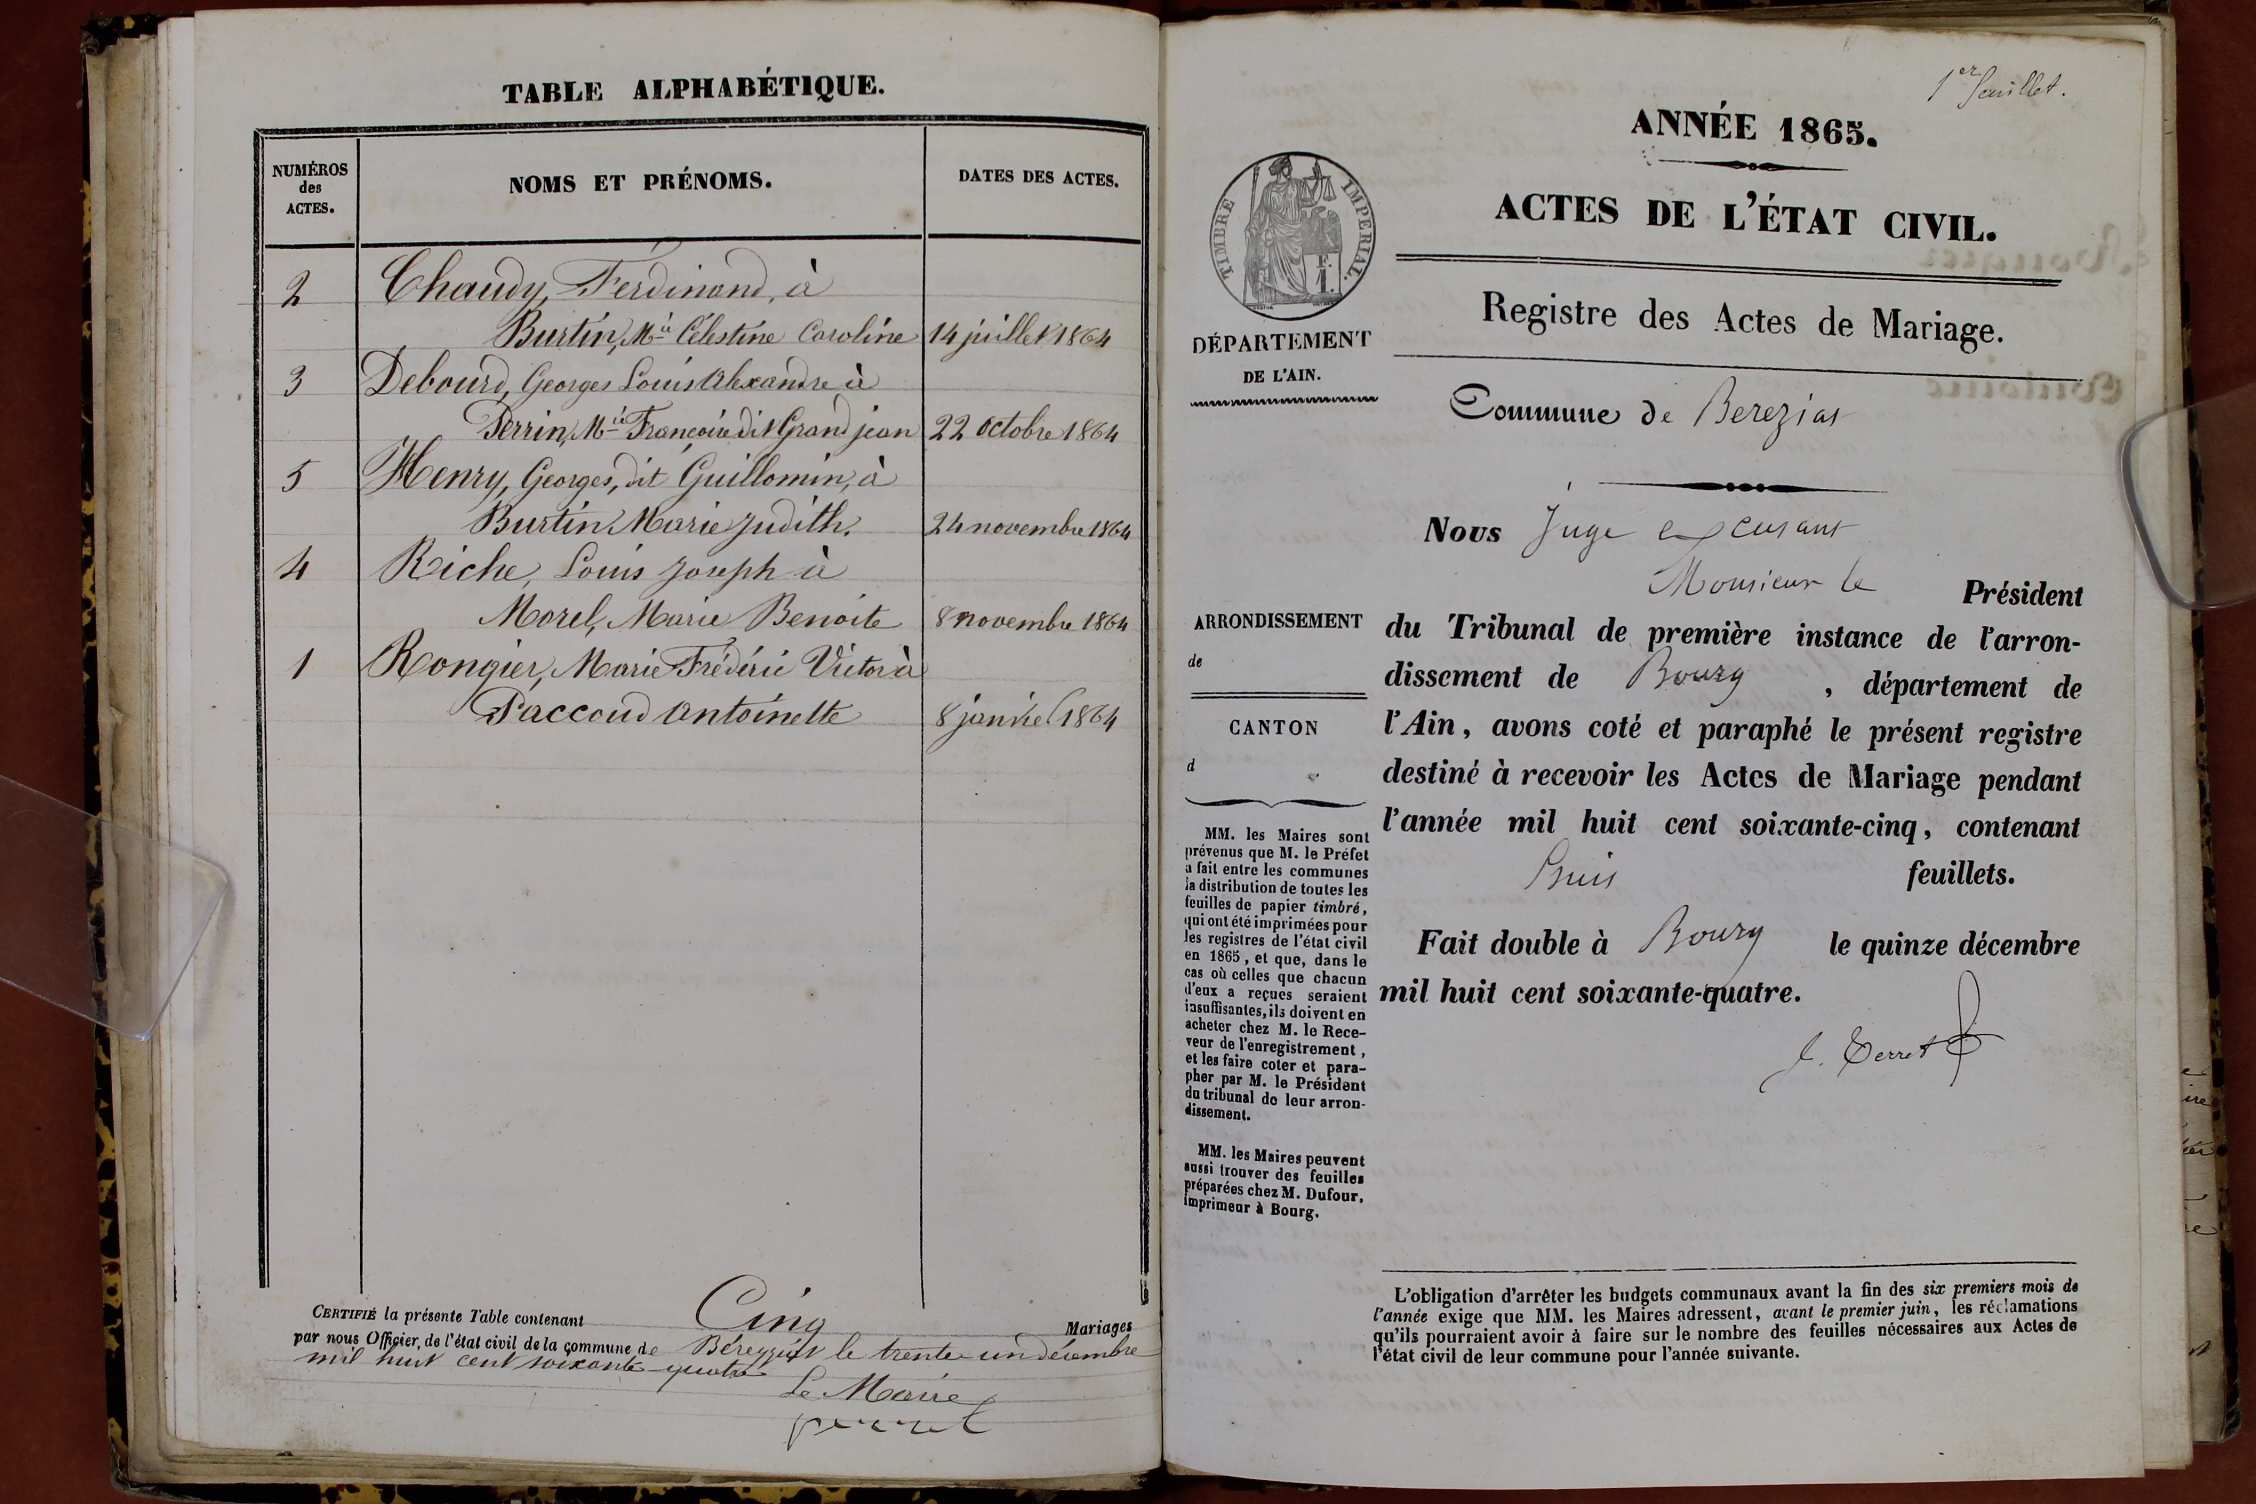 TABLE ALPHABÉTIQUE.
NUMÉROS
des
ACTES.
NOMS ET PRÉNOMS.
DATES DES ACTES.
2 Chaudy, Ferdinand, à
Burtin, Mie Célestine Caroline 14 juillet 1864
3 Debourd, Georges Louis Alexandre à
Perrin, Mie Françoise dit Grand jean 22 octobre 1864
5 Henry, Georges, dit Guillomin, à
Burtin Marie Judith. 24 novembre 1864
4 Riche, Louis Joseph à
Morel, Marie Benoite 8 novembre 1864
1 Rongier, Marie Frédéric Victor à
Paccoud Antoinette 8 janvier 1864
CERTIFIÉ la présente Table contenant Cinq Mariages
par nous Officier de l'état civil de la commune de Béreyziat le trente-un décembre
mil huit cent soixante-quatre
Le Maire
perret
1er feuillet.
ANNÉE 1865.
ACTES DE L'ÉTAT CIVIL.
TIMBRE IMPÉRIAL.
F.
1.
Registre des Actes de Mariage.
DÉPARTEMENT
DE L'AIN.
Commune de Berezias
Nous Juge excusant
Monsieur le Président
ARRONDISSEMENT
de
CANTON
d
du Tribunal de première instance de l'arron-
dissement de Bourg, département de
l'Ain, avons coté et paraphé le présent registre
destiné à recevoir les Actes de Mariage pendant
l'année mil huit cent soixante-cinq, contenant
feuillets.
Fait double à Bourg le quinze décembre
mil huit cent soixante-quatre.
MM. les Maires sont
prévenus que M. le Préfet
a fait entre les communes
la distribution de toutes les
feuilles de papier timbré,
qui ont été imprimées pour
les registres de l'état civil
en 1865, et que, dans le
cas où celles que chacun
d'eux a reçues seraient
insuffisantes, ils doivent en
acheter chez M. le Rece-
veur de l'enregistrement,
et les faire coter et para-
pher par M. le Président
du tribunal de leur arron-
dissement.
MM. les Maires peuvent
aussi trouver des feuilles
préparées chez M. Dufour,
imprimeur à Bourg.
L'obligation d'arrêter les budgets communaux avant la fin des six premiers mois de
l'année exige que MM. les Maires adressent, avant le premier juin, les réclamations
qu'ils pourraient avoir à faire sur le nombre des feuilles nécessaires aux Actes de
l'état civil de leur commune pour l'année suivante.